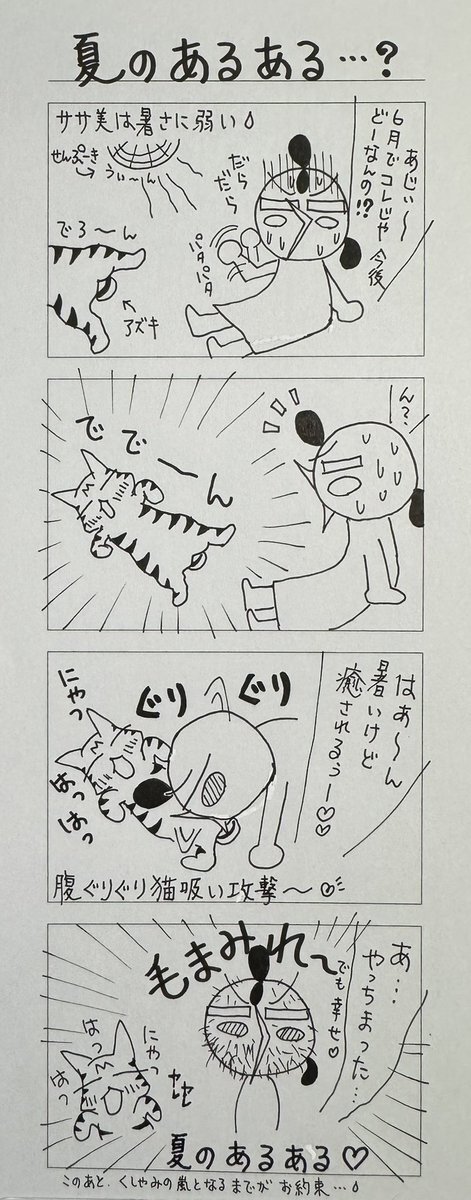 夏のあるある…?
ササ美は暑さに弱い
あじぃ〜
6月でコレじゃ
今後
どーなんの!?
せんぷーき
うぃーん
だら
だら
パタ
パタ
でろ〜ん
アズキ
ん?
ででーん
はぁ〜ん
暑いけど
癒されるぅー♡♡
ぐり
ぐり
にゃっ
はっ
はっ
腹ぐりぐり猫吸い攻撃〜♡
あ…
やっちまった…
毛まみれ〜
でも幸せ♡
にゃっ
はっ
はっ
夏のあるある♡
このあと、くしゃみの嵐となるまでがお約束…